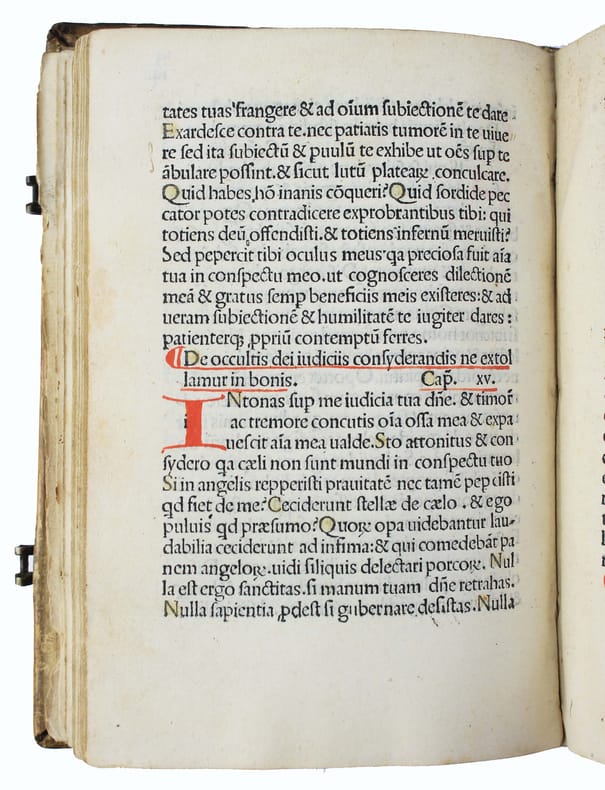 tates tuas frangere & ad oīum subiectionē te dare
Exardesce contra te. nec patiaris tumorē in te uiue
re sed ita subiectū & puulū te exhibe ut oēs sup te
ābulare possint. & sicut lutū plateaꝝ conculcare.
Quid habes hō inanis cōqueri? Quid sordide pec
cator potes contradicere exprobrantibus tibi: qui
totiens deū offendisti. & totiens infernū meruisti?
Sed pepercit tibi oculus meus qa preciosa fuit aīa
tua in conspectu meo. ut cognosceres dilectionē
meā & gratus semp beneficiis meis existeres: & ad
ueram subiectionē & humilitatē te iugiter dares:
patienterqꝫ ꝓpriū contemptū ferres.
De occultis dei iudiciis consyderandis ne extol
lamur in bonis. Cap̄. xv.
INtonas sup me iudicia tua dn̄e. & timor
ac tremore concutis oīa ossa mea & expa
uescit aīa mea ualde. Sto attonitus & con
sydero qa cæli non sunt mundi in conspectu tuo
Si in angelis repperisti prauitatē nec tamē pepcisti
qd fiet de me? Ceciderunt stellæ de cælo. & ego
puluis qd præsumo? Quoꝝ opa uidebantur lau-
dabilia ceciderunt ad infima: & qui comedebāt pa
nem angeloꝝ. uidi siliquis delectari porcoꝝ. Nul
la est ergo sanctitas. si manum tuam dn̄e retrahas.
Nulla sapientia ꝓdest si gubernare desistas. Nulla